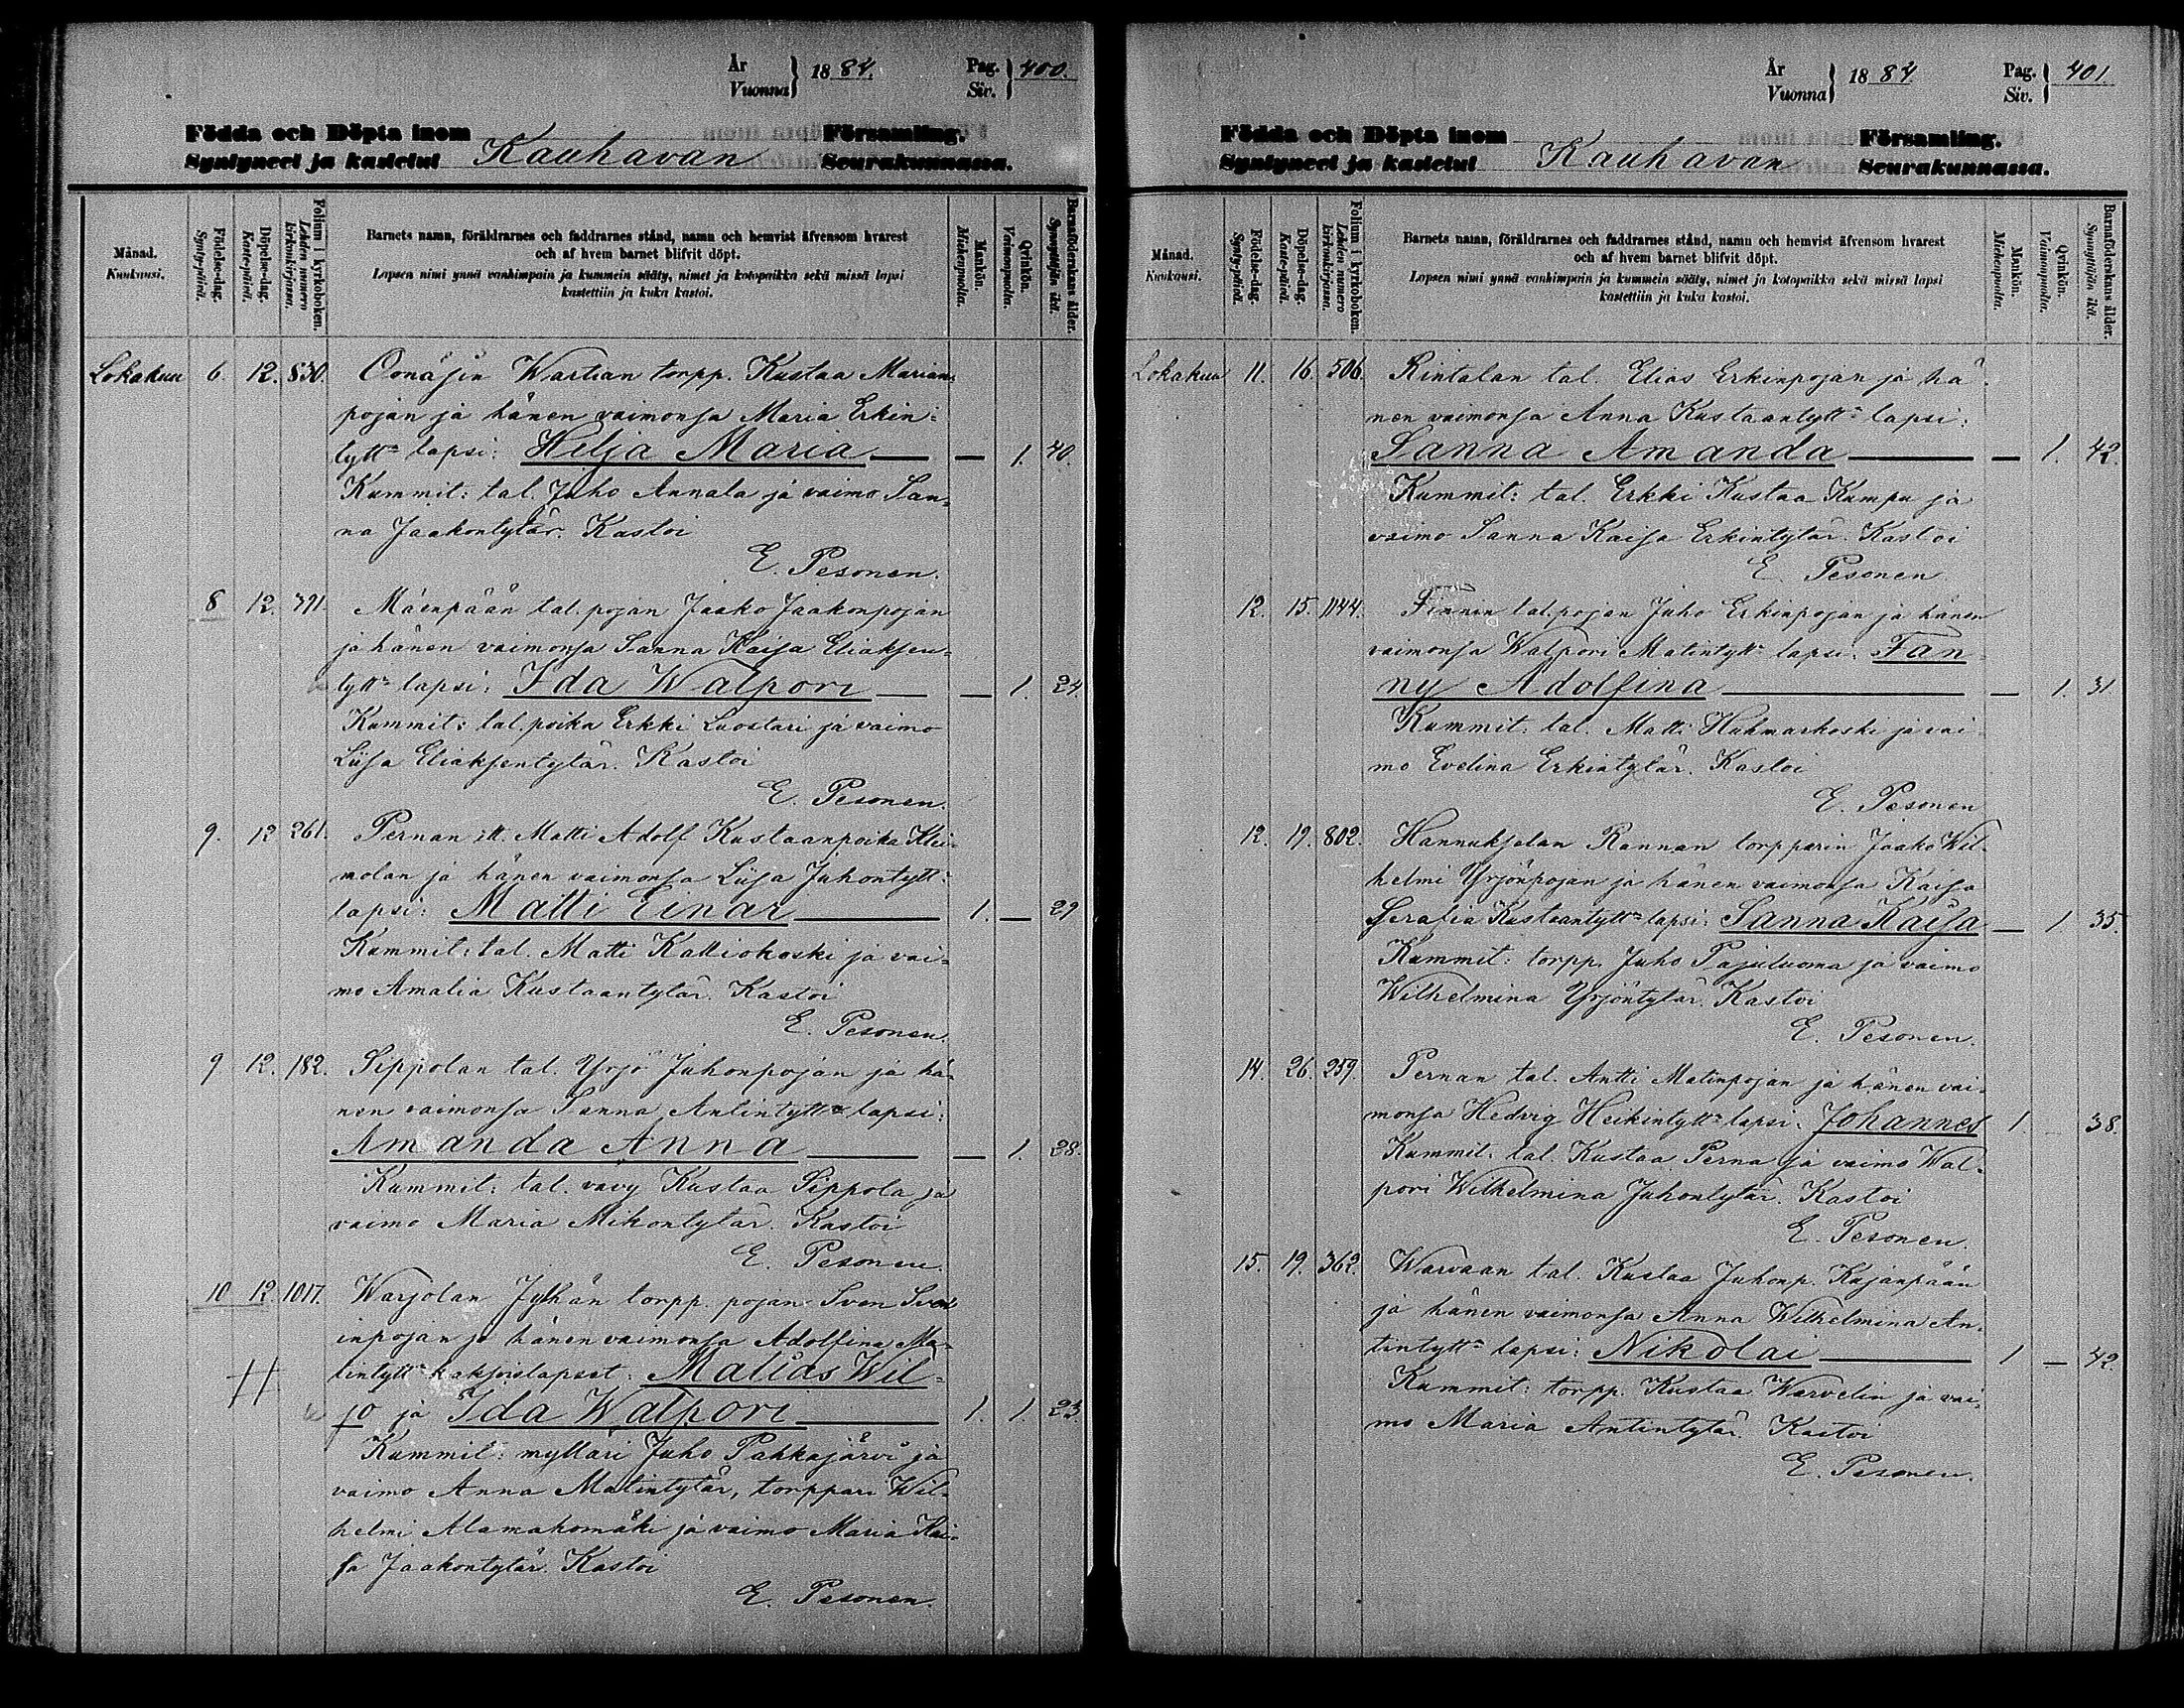 År
Vuonna } 1884.
Pag.
Siv. } 400.
Födda och Döpta inom
Syntyneet ja kastetut Kauhavan Församling.
Seurakunnassa.
Månad.
Kuukausi.
Födelse-dag.
Synty-päivä.
Döpelse-dag.
Kaste-päivä.
Folium i kyrkoboken.
Lehden numero kirkonkirjassa.
Barnets namn, föräldrarnes och faddrarnes stånd, namn och hemvist äfvensom hvarest
och af hvem barnet blifvit döpt.
Lapsen nimi ynnä vanhimpain ja kummein sääty, nimet ja kotopaikka sekä missä lapsi
kastettiin ja kuka kastoi.
Mankön.
Miehenpuolta.
Qvinkön.
Vaimonpuolta.
Barnaföderskans ålder.
Synnyttäjän ikä.
Lokakuu 6. 12. 830. Wartian torpp. Kustaa Marian-
pojan ja hänen vaimonsa Maria Erkin-
tytt. lapsi: Hilja Maria — — 1. 40.
Kummit: tal. Juho Annala ja vaimo San-
na Jaakontytär. Kastoi
E. Pesonen.
8 12. 391. Mäenpään tal. pojan Jaako Jaakonpojan
ja hänen vaimonsa Sanna Kaisa Eliaksen-
tytt. lapsi: Ida Walpori — — 1. 24.
Kummit: tal. poika Erkki Luostari ja vaimo
Liisa Eliaksentytär. Kastoi
E. Pesonen.
9. 12 261. Pernan itt. Matti Adolf Kustaanpoika Klei-
molan ja hänen vaimonsa Liisa Juhontytt.
lapsi: Matti Einar — 1. — 29
Kummit: tal. Matti Kalliokoski ja vai-
mo Amalia Kustaantytär. Kastoi
E. Pesonen.
9 12. 182. Sippolan tal. Yrjö Juhonpojan ja hä-
nen vaimonsa Sanna Antintytt. lapsi:
Amanda Anna — — 1. 28.
Kummit: tal. vävy Kustaa Sippola ja
vaimo Maria Mikontytär. Kastoi
E. Pesonen.
10 12. 1017. Warjolan Jylhän torpp. pojan Sven Sven
inpojan ja hänen vaimonsa Adolfina Ma-
tintytt. kaksoislapset: Matias Wil-
jo ja Ida Walpori — 1. 1. 23
Kummit: mylläri Juho Pahkajärvi ja
vaimo Anna Matintytär, torppari Wil-
helmi Alamahomäki ja vaimo Maria Kai-
sa Jaakontytär. Kastoi
E. Pesonen.
År
Vuonna } 1884.
Pag.
Siv. } 401
Födda och Döpta inom
Syntyneet ja kastetut Kauhavan Församling.
Seurakunnassa.
Månad.
Kuukausi.
Födelse-dag.
Synty-päivä.
Döpelse-dag.
Kaste-päivä.
Folium i kyrkoboken.
Lehden numero kirkonkirjassa.
Barnets namn, föräldrarnes och faddrarnes stånd, namn och hemvist äfvensom hvarest
och af hvem barnet blifvit döpt.
Lapsen nimi ynnä vanhimpain ja kummein sääty, nimet ja kotopaikka sekä missä lapsi
kastettiin ja kuka kastoi.
Mankön.
Miehenpuolta.
Qvinkön.
Vaimonpuolta.
Barnaföderskans ålder.
Synnyttäjän ikä.
Lokakuu 11. 16. 506. Rintalan tal. Elias Erkinpojan ja hä-
nen vaimonsa Anna Kustaantytt. lapsi:
Sanna Amanda — — 1. 42.
Kummit: tal. Erkki Kustaa Kumpu ja
vaimo Sanna Kaisa Erkintytär. Kastoi
E. Pesonen.
12. 15. 1144. Finnin tal. pojan Juho Erkinpojan ja hänen
vaimonsa Walpori Matintytt. lapsi: Fan-
ny Adolfina — — 1. 31
Kummit: tal. Matti Huhmarkoski ja vai-
mo Evelina Erkintytär. Kastoi
E. Pesonen
12. 19. 802. Hannukselan Rannan torpparin Jaako Wil-
helmi Yrjönpojan ja hänen vaimonsa Kaisa
Serafia Kustaantytt. lapsi: Sanna Kaisa — 1 35.
Kummit: torpp. Juho Pajuluoma ja vaimo
Wilhelmina Yrjöntytär. Kastoi
E. Pesonen.
14. 26. 259. Pernan tal. Antti Matinpojan ja hänen vai-
monsa Hedvig Heikintytt. lapsi: Johannes 1. 38.
Kummit: tal. Kustaa Perna ja vaimo Wal-
pori Wilhelmina Juhontytär. Kastoi
E. Pesonen.
15. 19. 362. Warvaan tal. Kustaa Juhonp. Kojanpään
ja hänen vaimonsa Anna Wilhelmina An-
tintytt. lapsi: Nikolai — 1 — 42.
Kummit: torpp. Kustaa Warvelin ja vai-
mo Maria Antintytär. Kastoi
E. Pesonen.